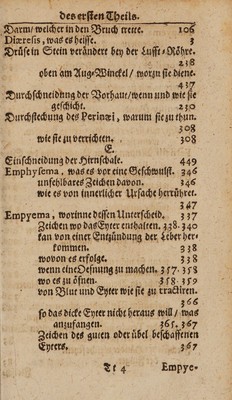 des ersten Theils.
Darm/ welcher in den Bruch trette. 106
Diæresis, was es heisse. 3
Drüse in Stein verändert bey der Lufft-Röhre.
238
oben am Aug-Winckel/ worzu sie diene.
437
Durchschneidung der Vorhaut/wenn und wie sie
geschicht. 250
Durchstechung des Perinæi, warum sie zu thun.
308
wie sie zu verrichten. 308
E.
Einschneidung der Hirnschale. 449
Emphysema, was es vor eine Geschwulst. 346
unfehlbares Zeichen davon. 346
wie es von innerlicher Ursache herrühret.
347
Empyema, worinne dessen Unterscheid. 337
Zeichen wo das Eyter enthalten. 338. 340
kan von einer Entzündung der Leber her-
kommen. 338
wovon es erfolge. 338
wenn eine Oefnung zu machen. 357. 358
wo es zu öfnen. 358. 359
von Blut und Eyter wie sie zu tractiren.
366
so das dicke Eyter nicht heraus will/ was
anzufangen. 365. 367
Zeichen des guten oder übel beschaffenen
Eyters. 367
Tt 4 Empye-